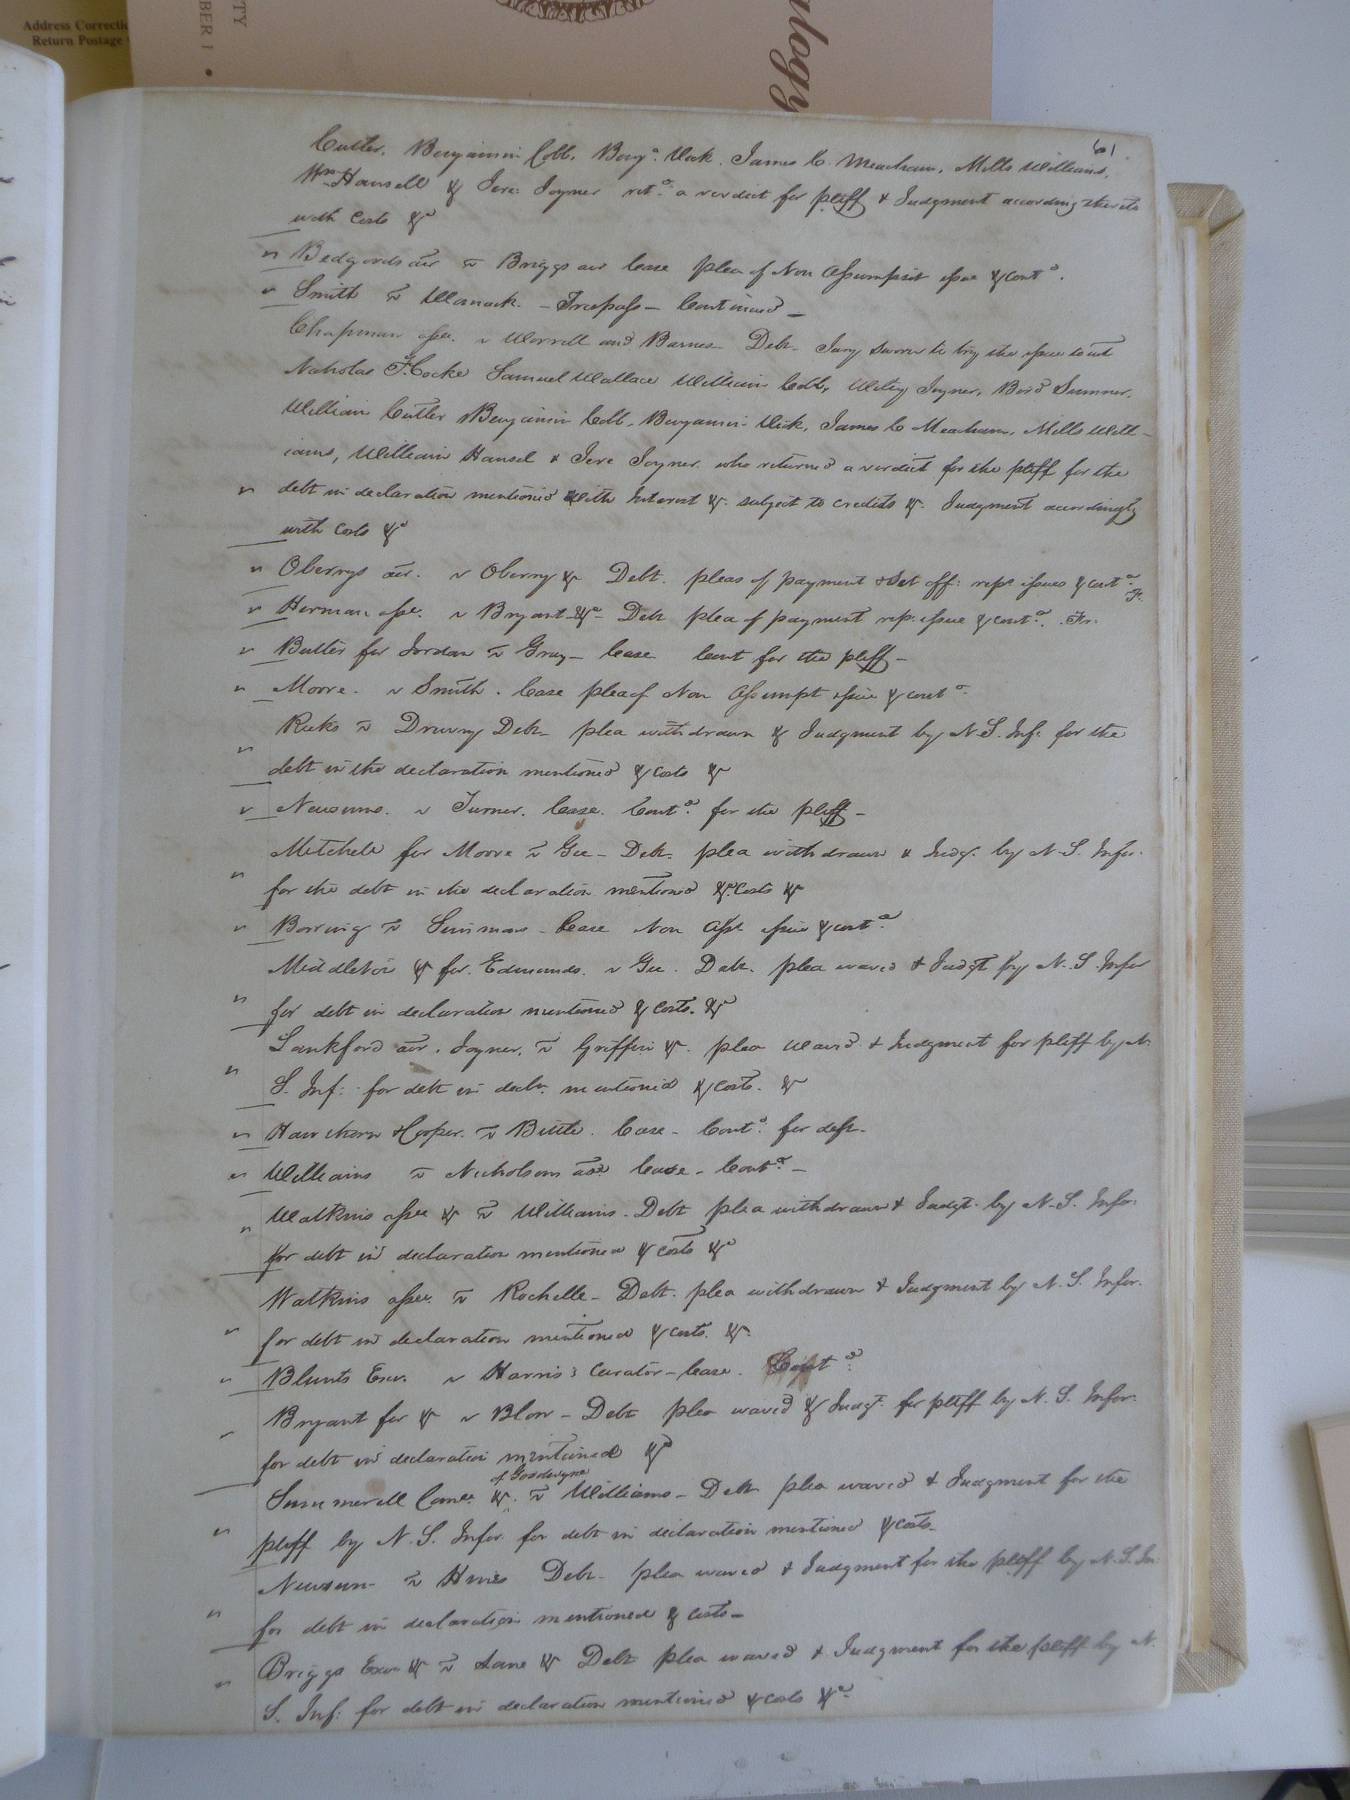 Address Correcti
Return Postage
TY
BER 1 •
ology
61
Cutler, Benjamin Cobb, Benj.ª Vick, James C. Meacham, Mills Williams,
Wm Hansell & Jere: Joyner retᵈ. a verdict for pltff & Judgment according thereto
with Costs &ᵃ
Briggs Case plea of Non Assumpsit issue & contᵈ.
Smith vs Womack. – Trespass – Continued –
Chapman assee. vs Worrell and Barnes – Debt – Jury sworn to try the issue to wit
Nicholas F. Cocke Samuel Wallace William Cobb, Wiley Joyner, Bird Sumner,
William Cutler Benjamin Cobb, Benjamin Vick, James C Meacham, Mills Will-
iams, William Hansel & Jere Joyner who returned a verdict for the pltff for the
debt in declaration mentioned with Interest &c. subject to credits &c. Judgment accordingly
with costs &ᵃ
Oberrys adr. vs Oberry &c Debt. pleas of payment & Set off: repⁿ issues & contᵈ.
Herman assee. vs Bryant &ᵃ – Debt plea of payment rep. issue & contᵈ.
Butler for Jordan vs Gray – Case Cont for the pltff –
Moore. vs Smith. Case plea of Non Assumpt issue & contᵈ.
Ricks vs Drewry Debt – plea withdrawn & Judgment by N S. Inf: for the
debt in the declaration mentioned & costs &c
Newsums. vs Turner. Case. Contᵈ. for the pltff –
Mitchell for Moore vs Gee – Debt. plea withdrawn & Judgt. by N. S. Infor.
for the debt in the declaration mentioned & Costs &c
vs Simmons – Case Non Asst issue & contᵈ
Middleton &c for Edmunds. vs Gee. Debt. plea waved & Judgt by N. S. Infor
for debt in declaration mentioned & costs. &ᵃ
Lankford adr. Joyner. vs Griffin &c. plea waved & Judgment for pltff by N.
S. Inf: for debt in decln. mentioned & costs. &c
Hawthorn & Cosper. vs Bittle. Case – Contᵈ. for deft.
Williams vs Nicholsons adr Case – Contᵈ. –
Watkins assee &c vs Williams – Debt plea withdrawn & Judgt. by N. S. Infor
for debt in declaration mentioned & costs &ᵃ
Watkins assee. vs Rochelle – Debt. plea withdrawn & Judgment by N. S. Infor.
for debt in declaration mentioned & costs. &c.
Blunts Exor. vs Harris's Curator – Case. Contᵈ.
Bryant for &c vs Blow – Debt plea waved & Judgt. for pltff by N. S. Infor.
for debt in declaration mentioned &ᵃ
of Goodwyne
Summerell Comee. &c. vs Williams – Debt plea waved & Judgment for the
pltff by N. S. Infor for debt in declaration mentioned & costs –
Newsum – vs Hines Debt – plea waved & Judgment for the pltff by N. S. In
for debt in declaration mentioned & costs –
Briggs Exor &c vs Lane &c Debt plea waved & Judgment for the pltff by N.
S. Inf: for debt in declaration mentioned & costs &ᵃ